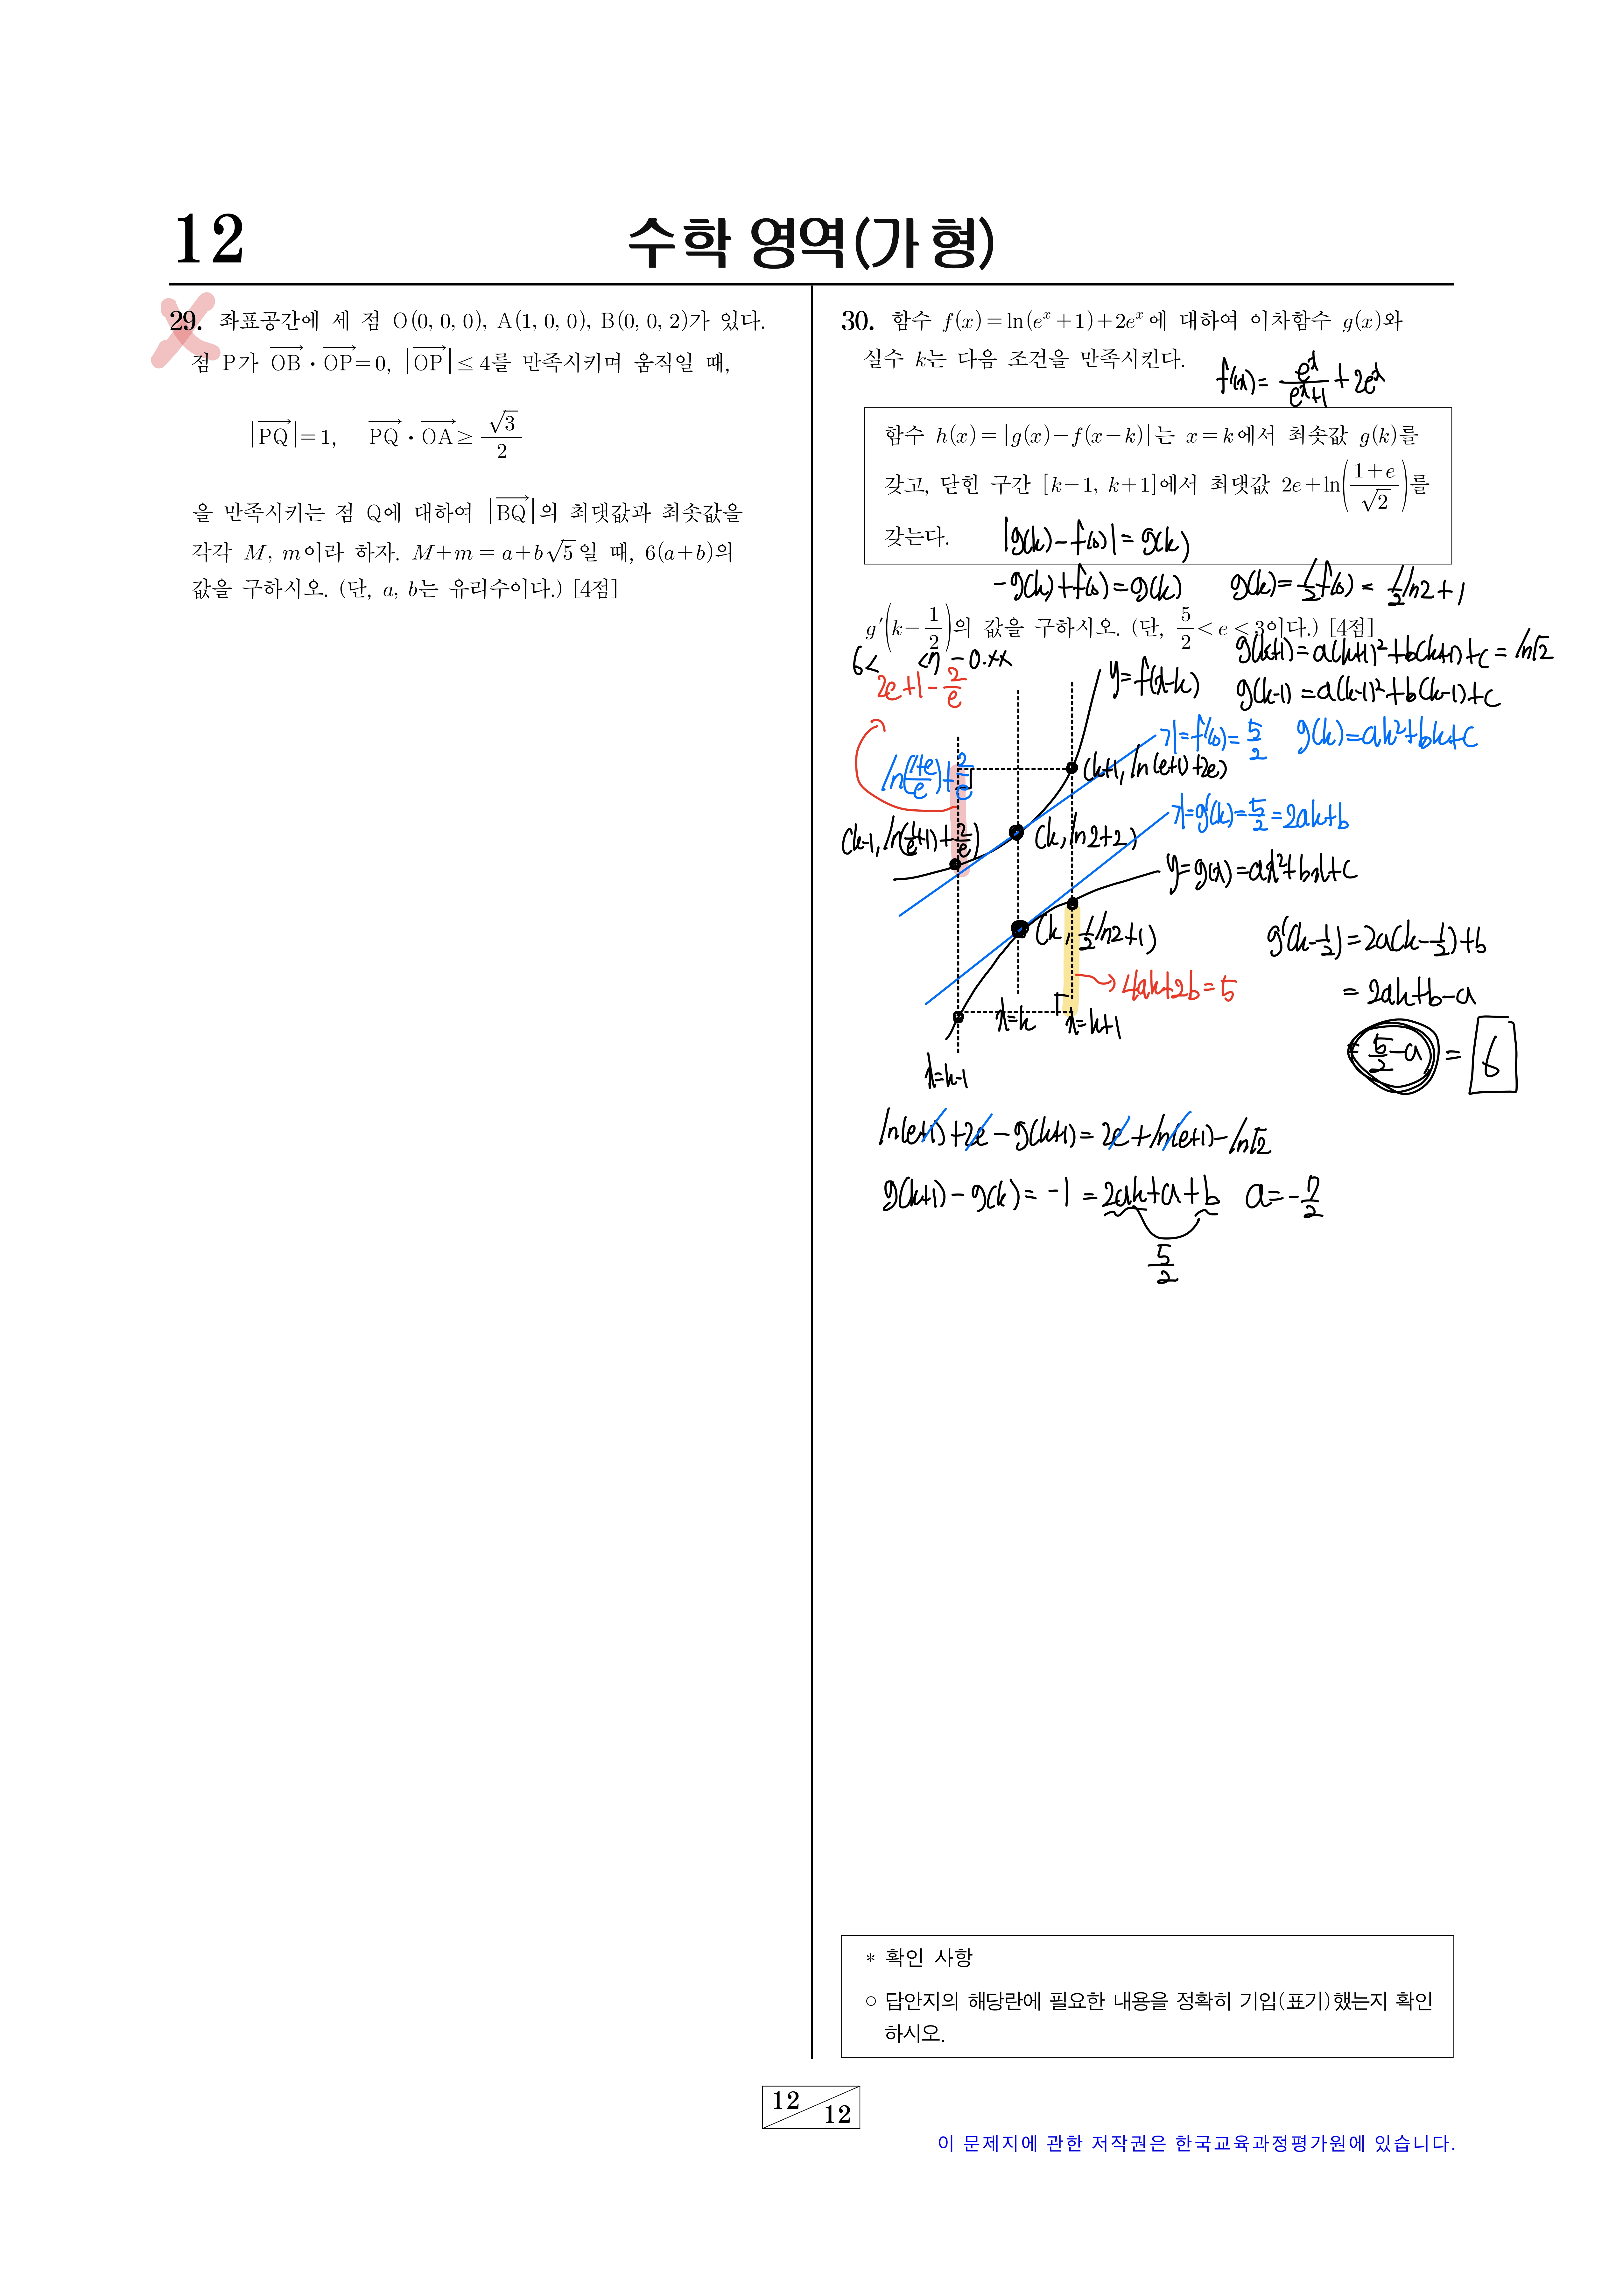 12
수학 영역(가 형)
29. 좌표공간에 세 점 O(0, 0, 0), A(1, 0, 0), B(0, 0, 2)가 있다.
점 P가 OB · OP = 0, |OP| ≤ 4를 만족시키며 움직일 때,
|PQ| = 1, PQ · OA ≥ √3/2
을 만족시키는 점 Q에 대하여 |BQ|의 최댓값과 최솟값을
각각 M, m이라 하자. M+m = a+b√5일 때, 6(a+b)의
값을 구하시오. (단, a, b는 유리수이다.) [4점]
30. 함수 f(x) = ln(e^x + 1) + 2e^x에 대하여 이차함수 g(x)와
실수 k는 다음 조건을 만족시킨다.
f'(x) = e^x/(e^x+1) + 2e^x
함수 h(x) = |g(x) − f(x−k)|는 x = k에서 최솟값 g(k)를
갖고, 닫힌 구간 [k−1, k+1]에서 최댓값 2e + ln((1+e)/√2)를
갖는다.
|g(k) − f(0)| = g(k)
−g(k) + f(0) = g(k) g(k) = 1/2 f(0) = 1/2 ln2 + 1
g'(k − 1/2)의 값을 구하시오. (단, 5/2 < e < 3이다.) [4점]
g(k+1) = a(k+1)² + b(k+1) + c = ln√2
6 < < 7 − 0.xx
2e + 1 − 2/e
g(k−1) = a(k−1)² + b(k−1) + c
y = f(x−k)
기 = f'(0) = 5/2 g(k) = ak² + bk + c
ln((1+e)/e) + 2/e
(k+1, ln(e+1) + 2e)
기 = g'(k) = 5/2 = 2ak + b
(k−1, ln(1/e + 1) + 2/e)
(k, ln2 + 2)
y = g(x) = ax² + bx + c
(k, 1/2 ln2 + 1)
g'(k − 1/2) = 2a(k − 1/2) + b
4ak + 2b = 5
= 2ak + b − a
x = k
x = k+1
= 5/2 − a = 6
x = k−1
ln(e+1) + 2e − g(k+1) = 2e + ln(e+1) − ln√2
g(k+1) − g(k) = −1 = 2ak + a + b a = −7/2
5/2
* 확인 사항
○ 답안지의 해당란에 필요한 내용을 정확히 기입(표기)했는지 확인
하시오.
12
12
이 문제지에 관한 저작권은 한국교육과정평가원에 있습니다.